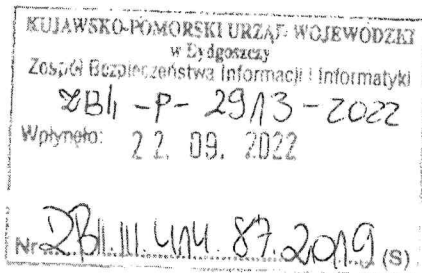 KUJAWSKO-POMORSKI URZĄD WOJEWÓDZKI
w Bydgoszczy
Zespół Bezpieczeństwa Informacji i Informatyki
ZBII-P-2913-2022
Wpłynęło: 22. 09. 2022
Nr ZBI.III.414.87.2019 (S)